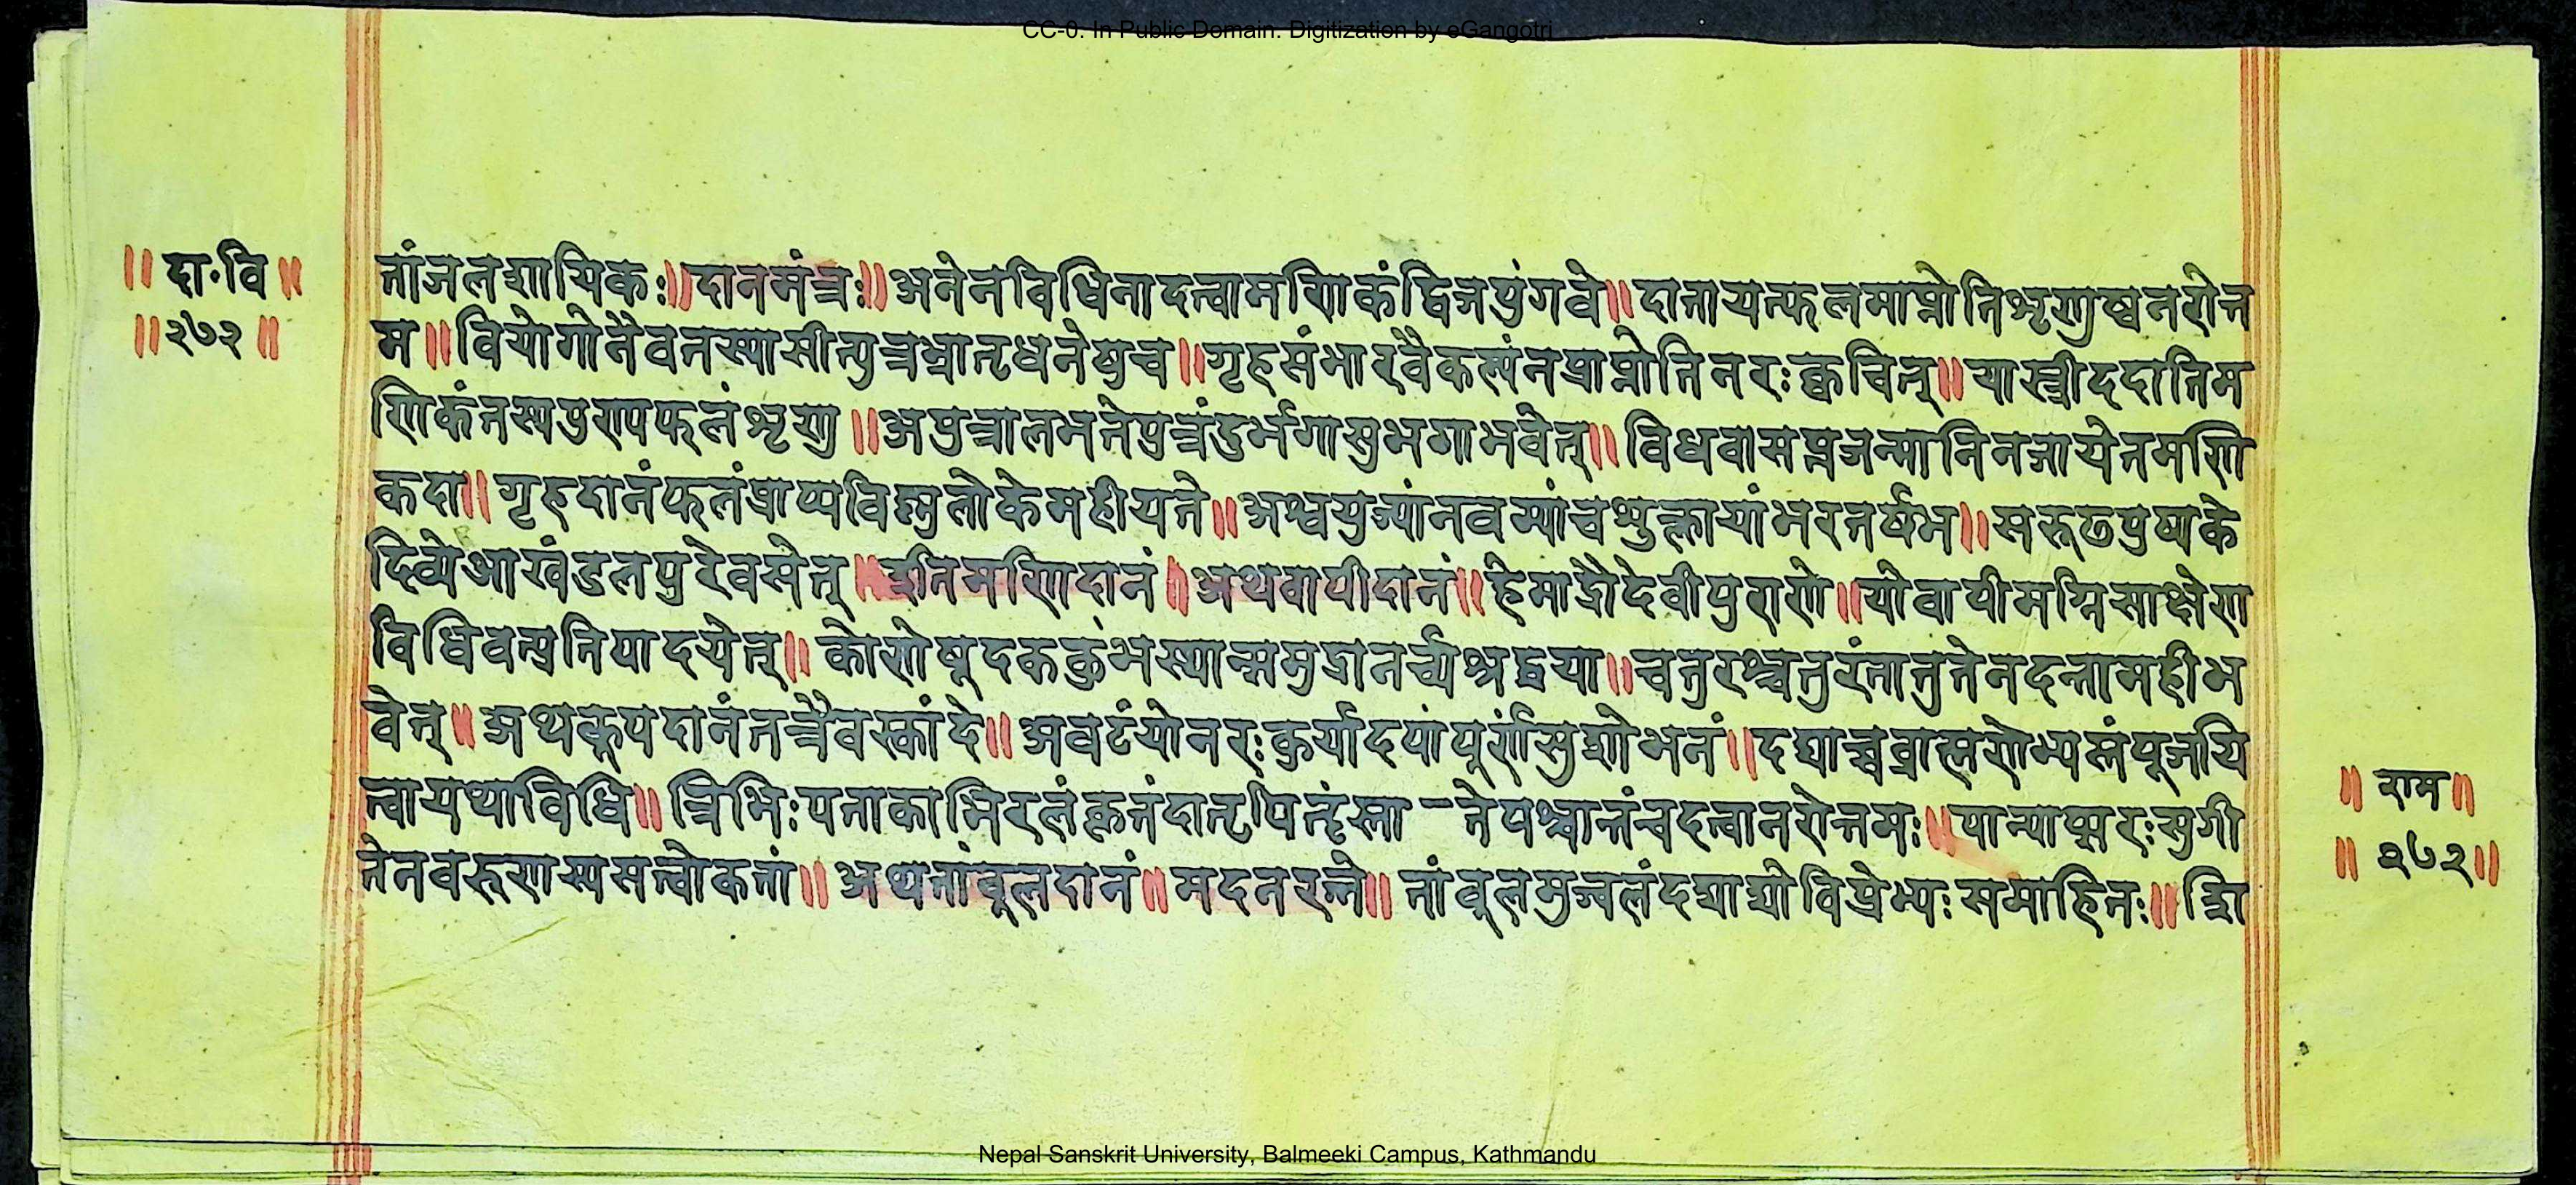 CC-0. In Public Domain. Digitization by eGangotri
॥ दा॰वि ॥
॥ २७२ ॥
तांजलशायिकः॥ दानमंत्रः॥ अनेनविधिनादत्वामणिकंद्विजपुंगवे॥ दातायत्फलमाप्नोतिशृणुष्वनरोत्त
म॥ वियोगोनैवतस्यासीत्पुत्रभ्रातृधनेषुच॥ गृहसंभारवैकल्पंनप्राप्नोतिनरःक्वचित्॥ यास्त्रीददातिम
णिकंतस्यपुण्यफलंशृणु॥ अपुत्रालभतेपुत्रंदुर्भगासुभगाभवेत्॥ विधवासप्तजन्मानिनजायेतमणि
कदा॥ गृहदानंफलंप्राप्यविष्णुलोकेमहीयते॥ अश्वयुज्यांनवम्यांचशुक्लायांभरतर्षभ॥ सरूढपुष्पके
दिव्येआखंडलपुरेवसेत्॥ इतिमणिदानं॥ अथवापीदानं॥ हेमाद्रौदेवीपुराणे॥ योवापीमग्निसाक्षेण
विधिवत्प्रतिपादयेत्॥ कोणेषूदककुंभस्थान्समुद्रानर्च्यश्रद्धया॥ चतुरश्चतुरंतातुतेनदत्तामहीभ
वेत्॥ अथकूपदानंतत्रैवस्कांदे॥ अवटंयोनरःकुर्यादपांपूर्णंसुशोभनं॥ दद्याच्चब्राह्मणेभ्यस्तंपूजयि
त्वायथाविधि॥ त्रिभिःपताकाभिरलंकृतंदातृपितृंस्ता - तेपश्चात्तंचदत्वानरोत्तमः॥ यात्यप्सरःसुगी
तेनवरुणस्यसत्वोकतां॥ अथतांबूलदानं॥ मदनरत्ने॥ तांबूलमुज्वलंदद्याद्योविप्रेभ्यःसमाहितः॥ द्वि
॥ राम ॥
॥ २७२ ॥
Nepal Sanskrit University, Balmeeki Campus, Kathmandu